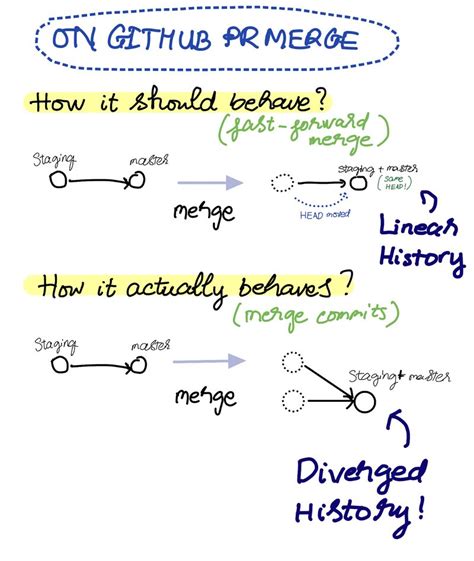 ON GITHUB PR MERGE
How it should behave?
(fast-forward
merge)
Staging master
merge
Staging + master
(same
HEAD!)
HEAD moved
Linear
History
How it actually behaves?
(merge commits)
Staging master
merge
Staging + master
Diverged
History!